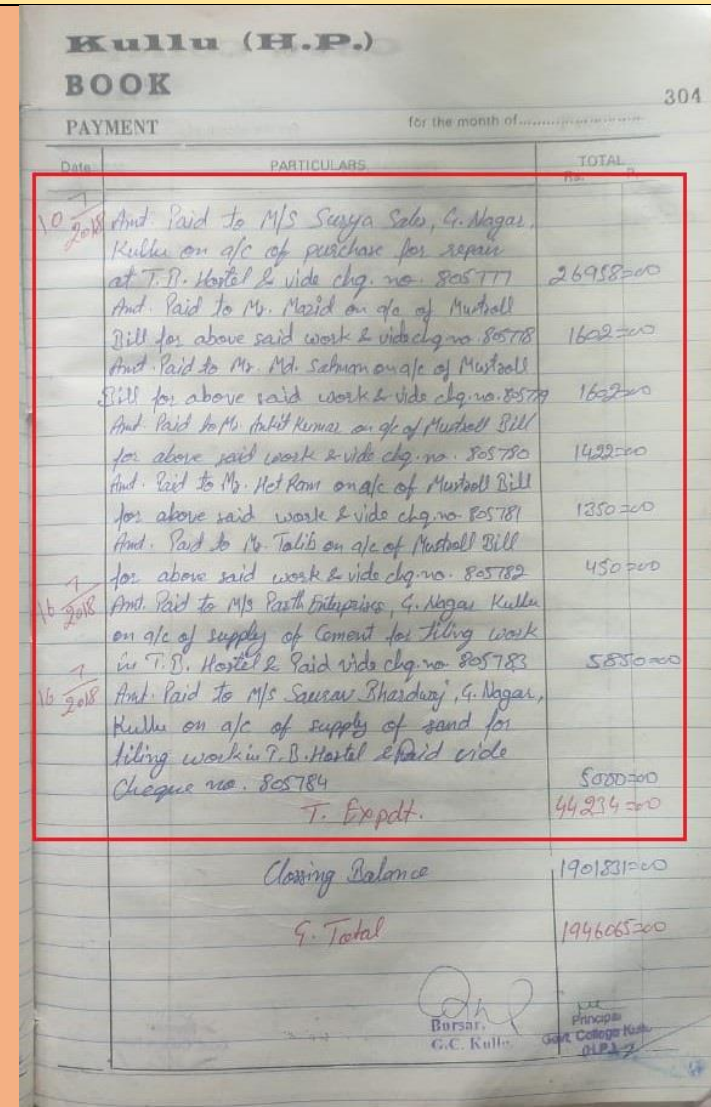 Kullu (H.P.)
BOOK
304
PAYMENT for the month of
Date PARTICULARS TOTAL
Rs. P.
10 7/2018 Amt. Paid to M/S Surya Sales, G. Nagar,
Kullu on a/c of purchase for repair
at T.B. Hostel & vide chq. no. 805777 26958=00
Amt. Paid to Mr. Mazid on a/c of Mustroll
Bill for above said work & vide chq. no. 805778 1602=00
Amt. Paid to Mr. Md. Salman on a/c of Mustroll
Bill for above said work & vide chq. no. 805779 1602=00
Amt. Paid to Mr. Ankit Kumar on a/c of Mustroll Bill
for above said work & vide chq. no. 805780 1422=00
Amt. Paid to Mr. Het Ram on a/c of Mustroll Bill
for above said work & vide chq. no. 805781 1350=00
Amt. Paid to Mr. Talib on a/c of Mustroll Bill
for above said work & vide chq. no. 805782 450=00
16 7/2018 Amt. Paid to M/s Parth Enterprises, G. Nagar Kullu
on a/c of supply of Cement for tiling work
in T.B. Hostel & Paid vide chq. no 805783 5850=00
16 7/2018 Amt. Paid to M/s Saurav Bhardwaj, G. Nagar,
Kullu on a/c of supply of sand for
tiling work in T.B. Hostel & Paid vide
Cheque no. 805784 5000=00
T. Expdt. 44234=00
Clossing Balance 1901831=00
G. Total 1946065=00
Bursar, Principal
G.C. Kullu. Govt. College Kullu
(H.P.)